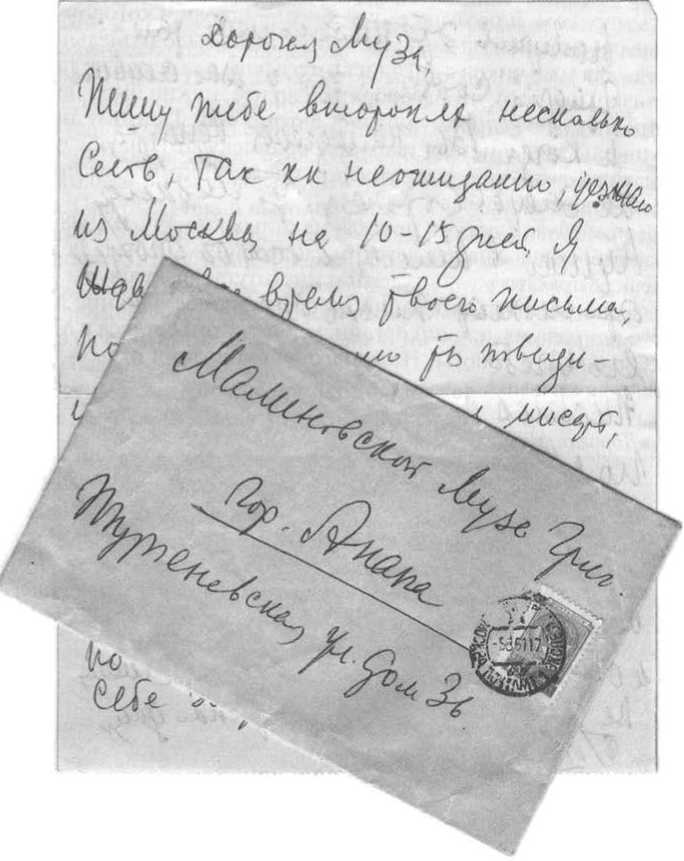 Дорогая Муза,
Пишу тебе второпях несколько
слов, так как неожиданно, уезжаю
из Москвы на 10-15 дней. Я
ждал все время твоего письма,
но ты
писем,
Малиновской Музе Григ.
гор. Анапа
Тургеневская ул. дом 36
МОСКВА
-5851 17
по
себе